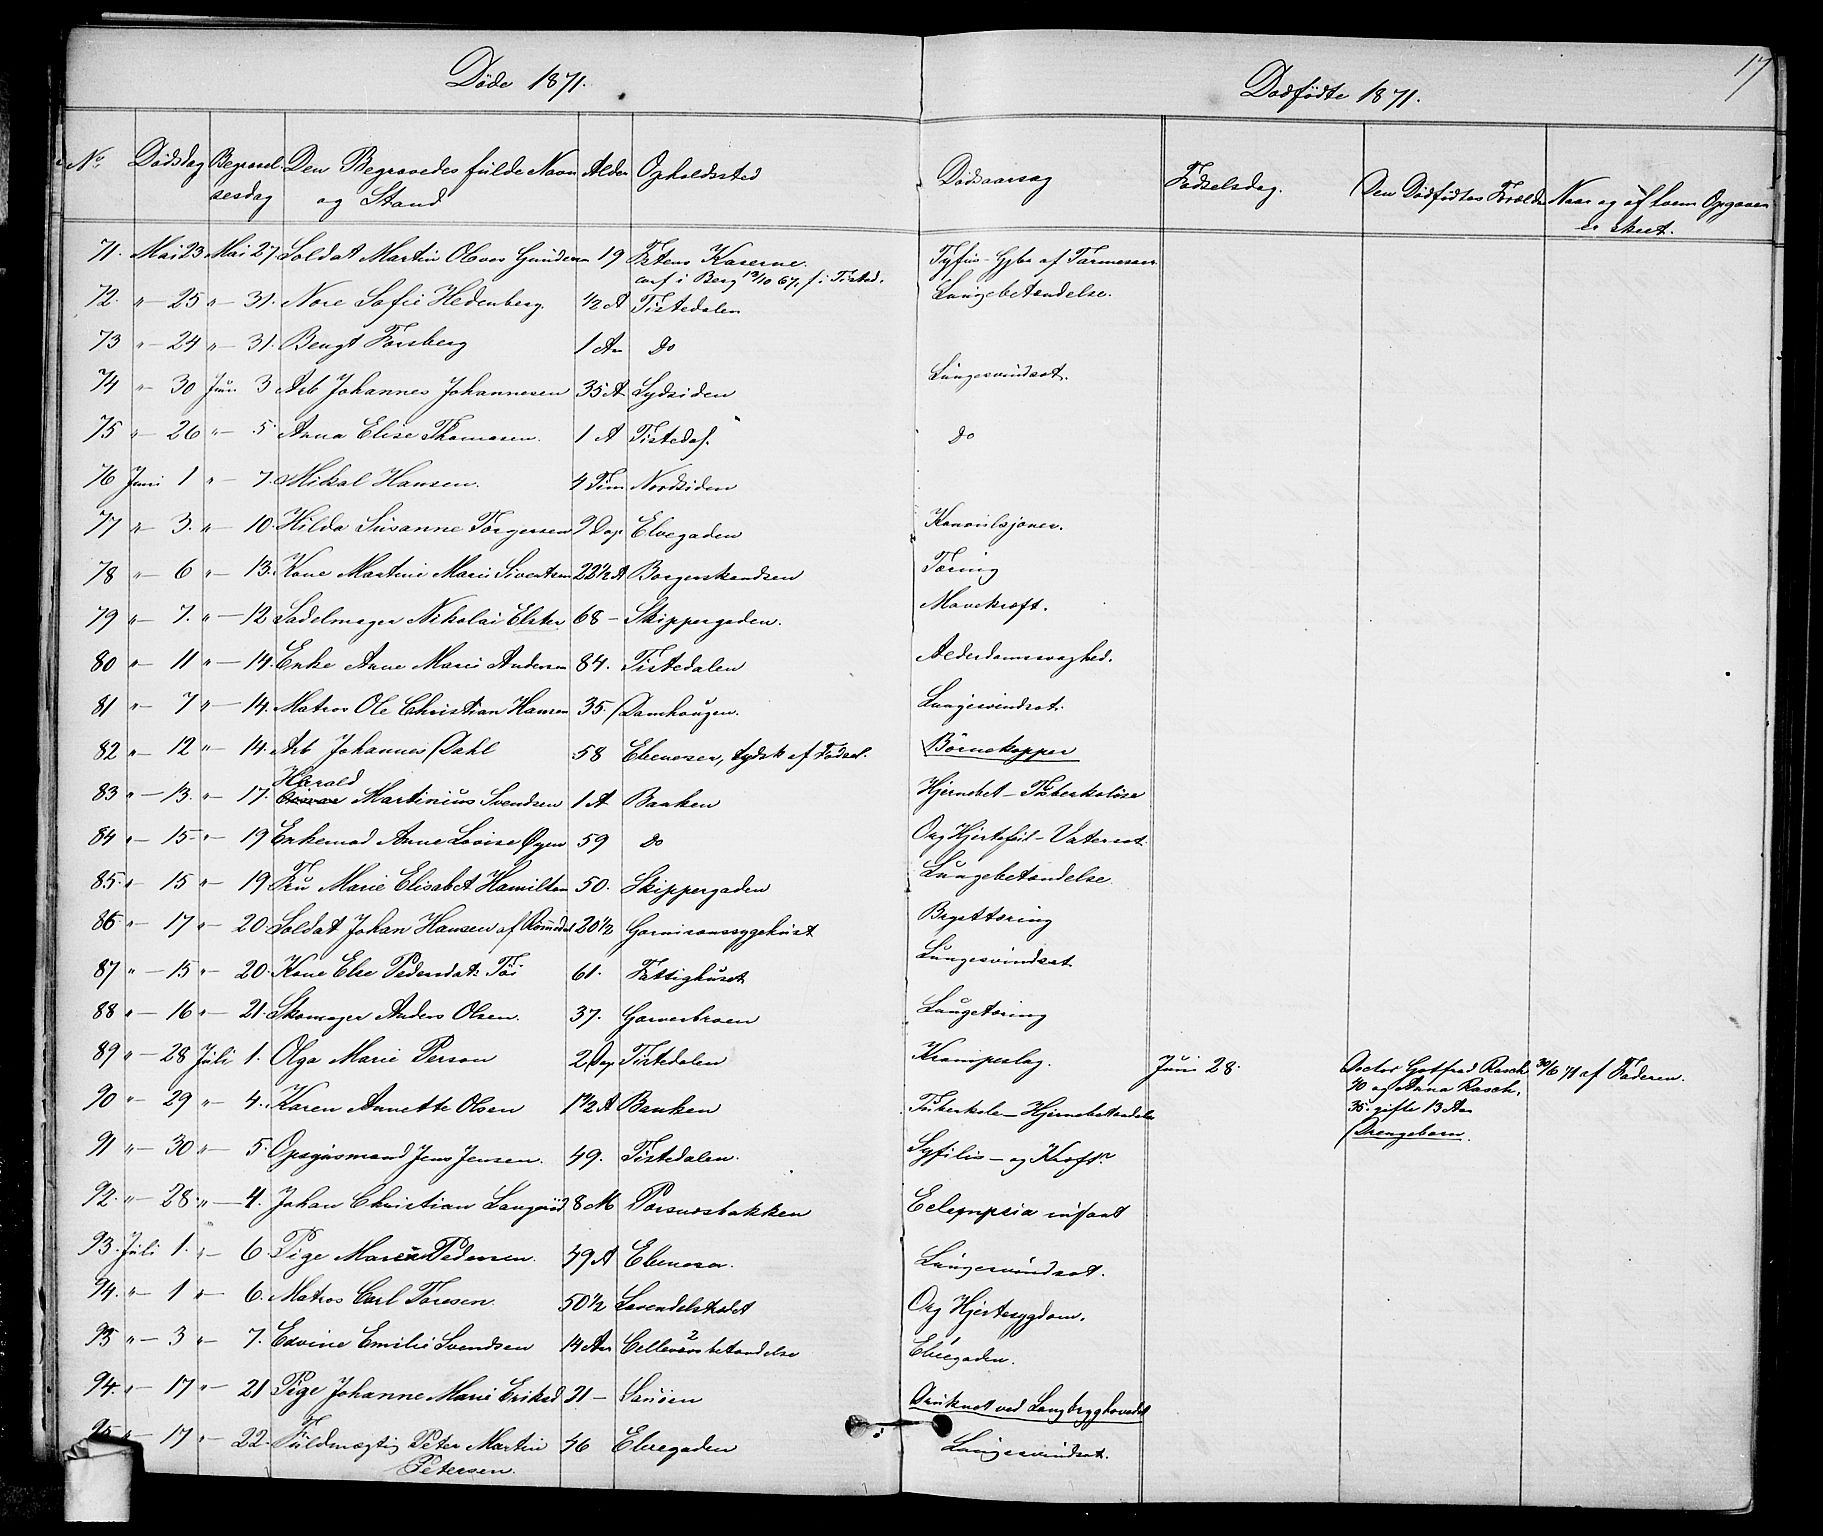 17
Døde 1871.
Dødfødte 1871.
No Dødsdag Begravelsesdag Den Begravedes fulde Navn og Stand Alder Opholdssted Dødsaarsag Fødselsdag. Den Dødfødtes Forældre Naar og af hvem Opgaven er skeet.
71. Mai 23 Mai 27 Soldat Martin Olves 19 Fstens Kaserne.
conf i Berg 13/10 67, f. i Tisted.
72. " 25 " 31. Nore Sofie Hedenberg. 1/2 A Tistedalen Lungebetændelse.
73 " 24 " 31. Bengt Forsberg 1 Aar Do
74 " 30 Juni 3 Arb Johannes Johannesen 35 A Sydsiden Lungesvindsot.
75 " 26 " 5. Anna Elise Thomasen. 1 A Tistedal. Do
76 Juni 1 " 7. Mikal Hansen. 4 Tim Nordsiden
77 " 3. " 10. Hilda Susanne Torgersen 9 Dag Elvegaden Konvulsjoner.
78 " 6 " 13. Kone Martine Marie Sivertsen 22 1/2 A Borgerskandsen Tæring
79 " 7. " 12 Sadelmager Nikolai Elster 68 - Skippergaden. Mavekræft.
80 " 11 " 14. Enke Anne Marie Andersen 84. Tistedalen Alderdomssvaghed.
81 " 7 " 14. Matros Ole Christian Hansen 35. Damhaugen. Lungesvindsot.
82 " 12 " 14. Arb Johannes Dahl 58 Ebeneser, tydsk af Fødsel. Børnekopper
Harald
83 " 13. " 17. Martinius Svendsen 1 A Banken Hjernebet - Tuberkuløse
84 " 15 " 19 Enkemad Anne Lovise Øyen 59 Do Org Hjertefeil - Vatersot.
85. " 15 " 19 Fru Marie Elisabet Hamilton 50. Skippergaden Lungebetændelse.
86 " 17 " 20. Soldat Johan Hansen af Romedal 20 1/2 Garnisonssygehuset Brysttæring
87 " 15 " 20. Kone Else Pedersdat: Tøi 61. Fattighuset Lungesvindsot
88 " 16 " 21. Skomager Anders Olsen. 37. Garverbroen Lungetæring
89 " 28 Juli 1. Olga Marie Person 2 Dag Tistedalen Krampeslag. Juni 28. Doctor Gotfred Rasch 30/6 71 af Faderen.
40 og Anna Rasch.
90 " 29 " 4. Karen Annette Olsen 1 1/2 A Banken Tuberkuløs Hjernebetændelse 35. gifte 13 Aar
Drengebarn.
91 " 30 " 5. Opsynsmand Jens Jensen. 49. Tistedalen. Syfilis - og Kræft
92. " 28. " 4. Johan Christian Langerød 8 M Porsnesbakken Eclampsia infant
93. Juli 1. " 6. Pige Maren Pedersen. 49 A Ebeneser. Lungesvindsot.
94. " 1 " 6. Matros Carl Toresen. 50 1/2 Lavendelstrædet Org Hjertesygdom.
95 " 3 " 7. Edvine Emilie Svendsen 14 Aar Cellevævsbetændelse Elvegaden.
94. " 17 " 21 Pige Johanne Marie Eriksd 21 - Sauøen Druknet ved Langbrygghovedet
95. " 17 " 22. Fuldmægtig Peter Martin Petersen. 46 Elvegaden Lungesvindsot.